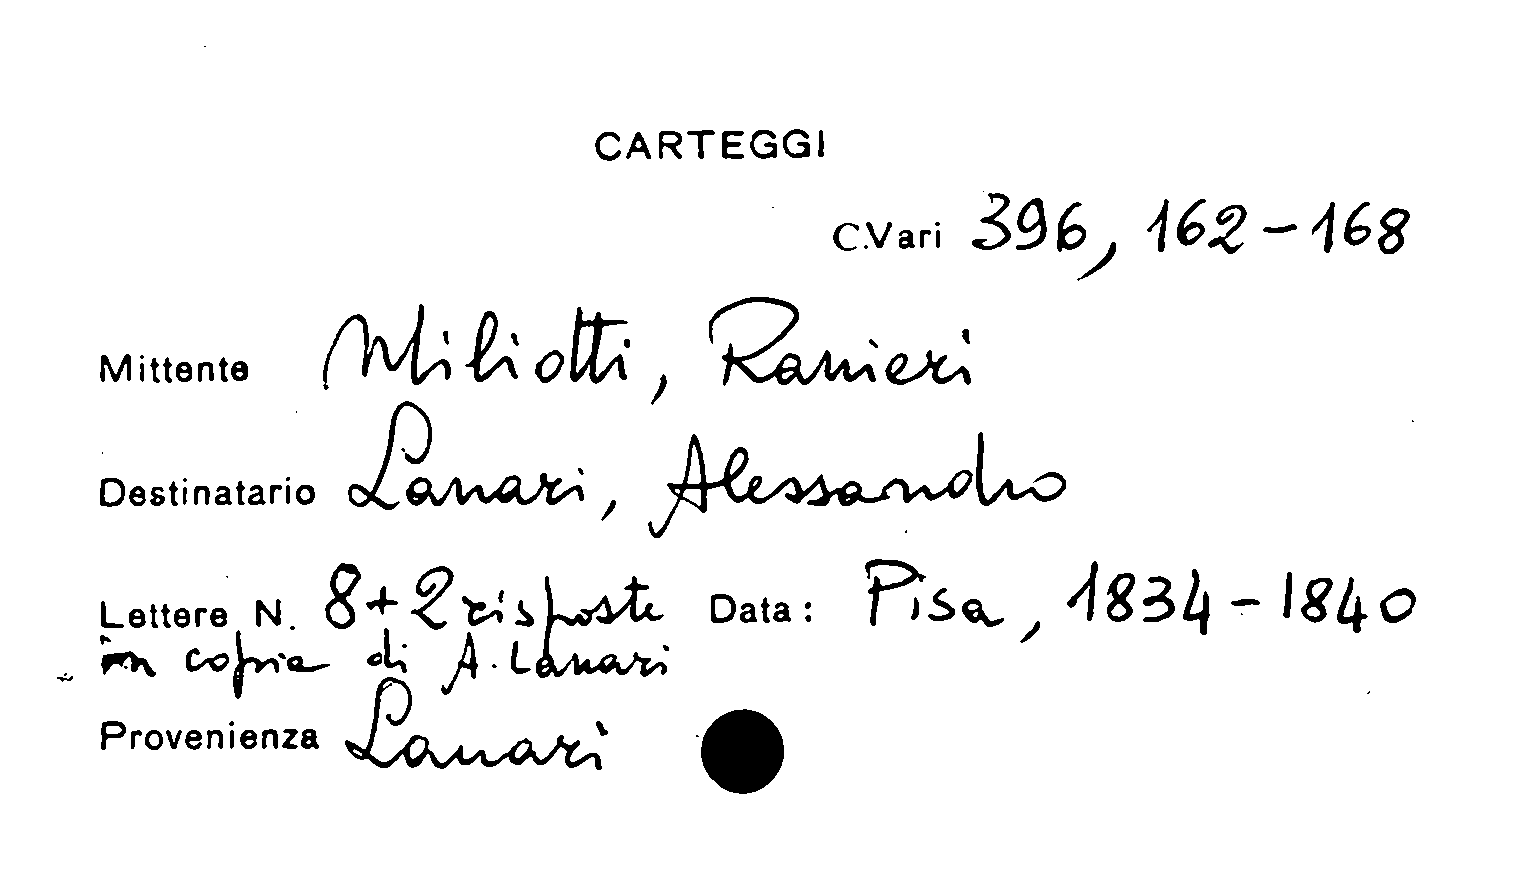 CARTEGGI
C.Vari 396, 162-168
Mittente Miliotti, Ranieri
Destinatario Lanari, Alessandro
Lettere N. 8+2 risposte Data: Pisa, 1834-1840
in copia di A. Lanari
Provenienza Lanari